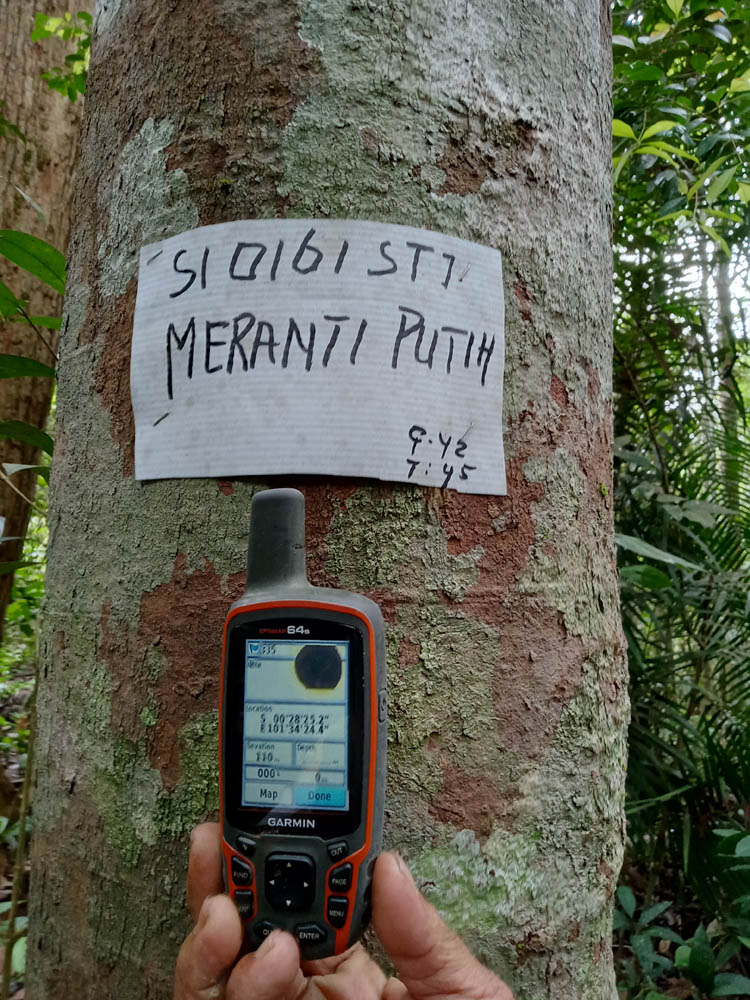 SI 0161 ST7
MERANTI PUTIH
T: 45
GPSMAP 64s
335
Note
Location
S 00°28'25.2"
E101°34'24.4"
Elevation
Depth
110 m
m
000°
0 m
Map
Done
GARMIN
IN
OUT
FIND
PAGE
MENU
ENTER